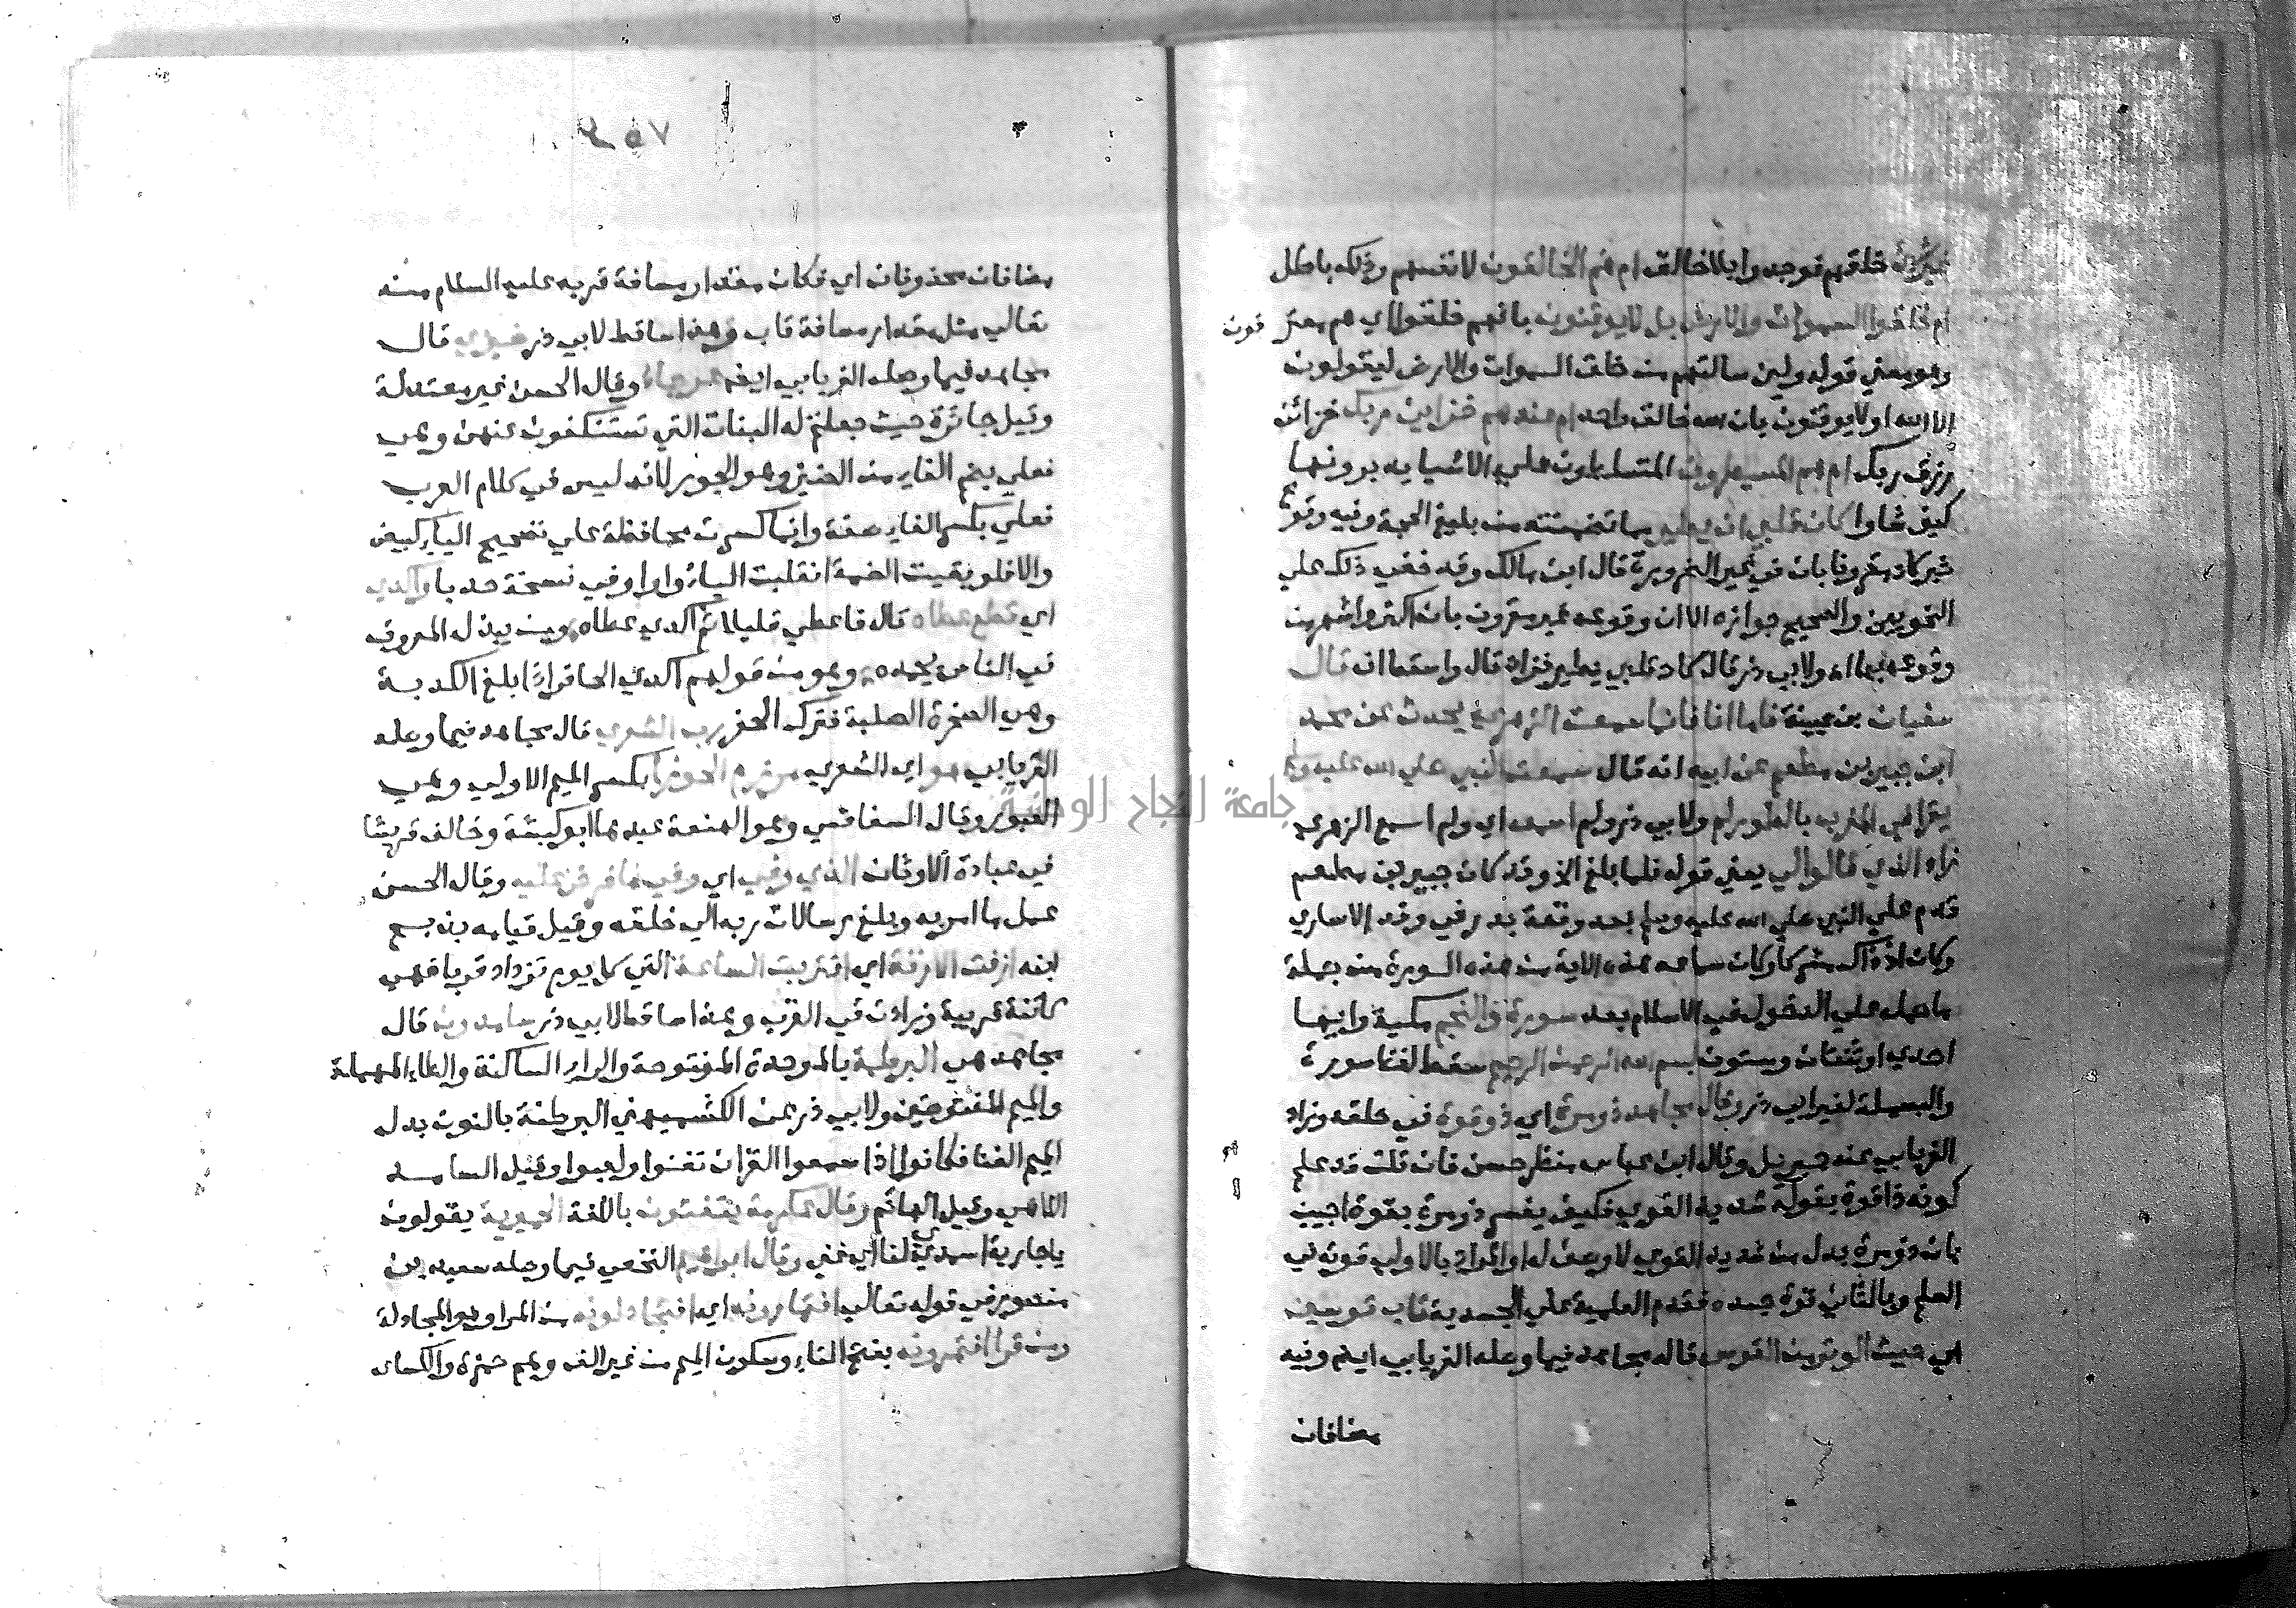 غير شيء خلقهم فوجدوا بلا خالق ام هم الخالقون لانفسهم وذلك باطل
ام خلقوا السموات والارض بل لا يوقنون بانهم خلقوا اي هم معتر فون
وهو معني قوله ولين سالتهم من خلق السموات والارض ليقولون
الا الله او لا يوقنون بان الله خالق واحد ام عندهم خزاين ربك خزائن
رزق ربك ام هم المسيطرون المتسلطون علي الاشيا يدبرونها
كيف شاوا كاد قلبي ان يطير مما تضمنته من بليغ الحجة وفيه وقوع
خبر كاد مقرونا بان في غير الضرورة قال ابن مالك وقد خفي ذلك علي
النحويين والصحيح جوازه الا ان وقوعه غير مقرون بان اكثر واشهر من
وقوعه بها اه ولابي ذر قال كاد قلبي يطير فزاد قال واسقط ان قال
سفيان بن عيينة فاما انا فانما سمعت الزهري يحدث عن محمد
ابن جبير بن مطعم عن ابيه انه قال سمعت النبي صلي الله عليه وسلم
يقرا في المغرب بالطور لم ولابي ذر ولم اسمعه اي ولم اسمع الزهري
زاد الذي قالوا لي يعني قوله فلما بلغ الخ وقد كان جبير بن مطعم
قدم علي النبي صلي الله عليه وسلم بعد وقعة بدر في وفد الاساري
وكان اذ ذاك مشركا وكان سماعه هذه الاية من هذه السورة من جملة
ما حمله علي الدخول في الاسلام بعد سورة والنجم مكية وايها
احدي او ثنتان وستون بسم الله الرحمن الرحيم سقط لفظ سورة
والبسملة لغير ابي ذر وقال مجاهد ذو مرة اي ذو قوة في خلقه وزاد
الفريابي عنه جبريل وقال ابن عباس منظر حسن فان قلت قد علم
كونه ذا قوة بقوله شديد القوي فكيف يفسر ذو مرة بقوة اجيب
بان ذو مرة بدل من شديد القوي لا وصف له او المراد بالاول قوته في
العلم وبالثاني قوة جسده فقدم العلمية علي الجسدية قاب قوسين
اي حيث الوتر من القوس قاله مجاهد فيما وصله الفريابي ايضا وفيه
مضافان
٢٥٧
مضافان محذوفان اي فكان مقدار مسافة قربه عليه السلام منه
تعالي مثل مقدار مسافة قاب وهذا ساقط لابي ذر ضيزي قال
مجاهد فيما وصله الفريابي ايضا عوجاء وقال الحسن غير معتدلة
وقيل جائرة حيث جعلتم له البنات التي تستنكفون عنهن وهي
فعلي بضم الفاء من الضيز وهو الجور لانه ليس في كلام العرب
فعلي بكسر الفاء صفة وانما كسرت محافظة علي تصحيح الياء كبيض
والا فلو بقيت الضمة انقلبت الياء واوا وفي نسخة حدبا واكدي
اي قطع عطاه قال فاعطي قليلا ثم اكدي عطاه ومن يبذل المعروف
في الناس يحمده وهو من قولهم اكدي الحافر اذا بلغ الكدية
وهي الصخرة الصلبة فترك الحفر رب الشعري قال مجاهد فيما وصله
الفريابي هو اي الشعري مرزم الجوزا بكسر الميم الاولي وهي
العبور وقال السفاقسي وهو الهنعة عبدها ابو كبشة وخالف قريشا
في عبادة الاوثان الذي وفي اي وفي ما فرض عليه وقال الحسن
عمل ما امر به وبلغ رسالات ربه الي خلقه وقيل قيامه بذبح
ابنه ازفت الازفة اي اقتربت الساعة التي كل يوم تزداد قربا فهي
كائنة قريبة وزادت في القرب وهذا ساقط لابي ذر سامدون قال
مجاهد هي البرطمة بالموحدة المفتوحة والراء الساكنة والطاء المهملة
والميم المفتوحتين ولابي ذر عن الكشميهني البرطنة بالنون بدل
الميم الغنا فكانوا اذا سمعوا القران تغنوا ولعبوا وقيل السامد
اللاهي وقيل الهائم وقال عكرمة يتغنون باللغة الحميرية يقولون
يا جارية اسمدي لنا اي غني وقال ابراهيم النخعي فيما وصله سعيد بن
منصور في قوله تعالي افتمارونه اي افتجادلونه من المرا وهو المجادلة
ومن قرا افتمرونه بفتح التاء وسكون الميم من غير الف وهم حمزة والكساي
جامعة النجاح الوطنية